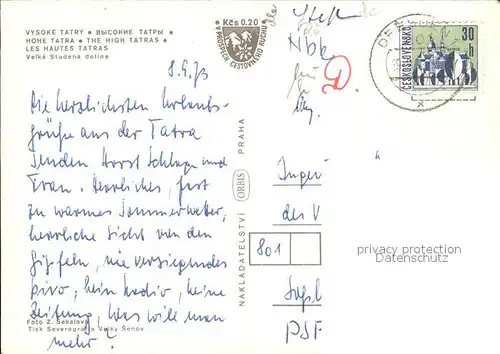 VYSOKÉ TATRY • ВЫСОКИЕ ТАТРЫ •
HOHE TATRA • THE HIGH TATRAS •
LES HAUTES TATRAS
Velká Studená dolina
Kčs 0.20
V PROSPĚCH CESTOVNÍHO RUCHU
ČESKOSLOVENSKO
30 h
8.9.73
Die herzlichsten Urlaubs-
grüße aus der Tatra
senden Horst und
Frau. Herrliches, fast
zu warmes Sommerwetter,
herrliche Sicht von den
Gipfeln, nie versiegendes
pivo, kein Radio, keine
Zeitung, was will man
mehr?
Nbk
D
NAKLADATELSTVÍ ORBIS PRAHA
Inge
des V
801
PSF
privacy protection
Datenschutz
Foto Z. Sekalová
Tisk Severografia Velký Šenov